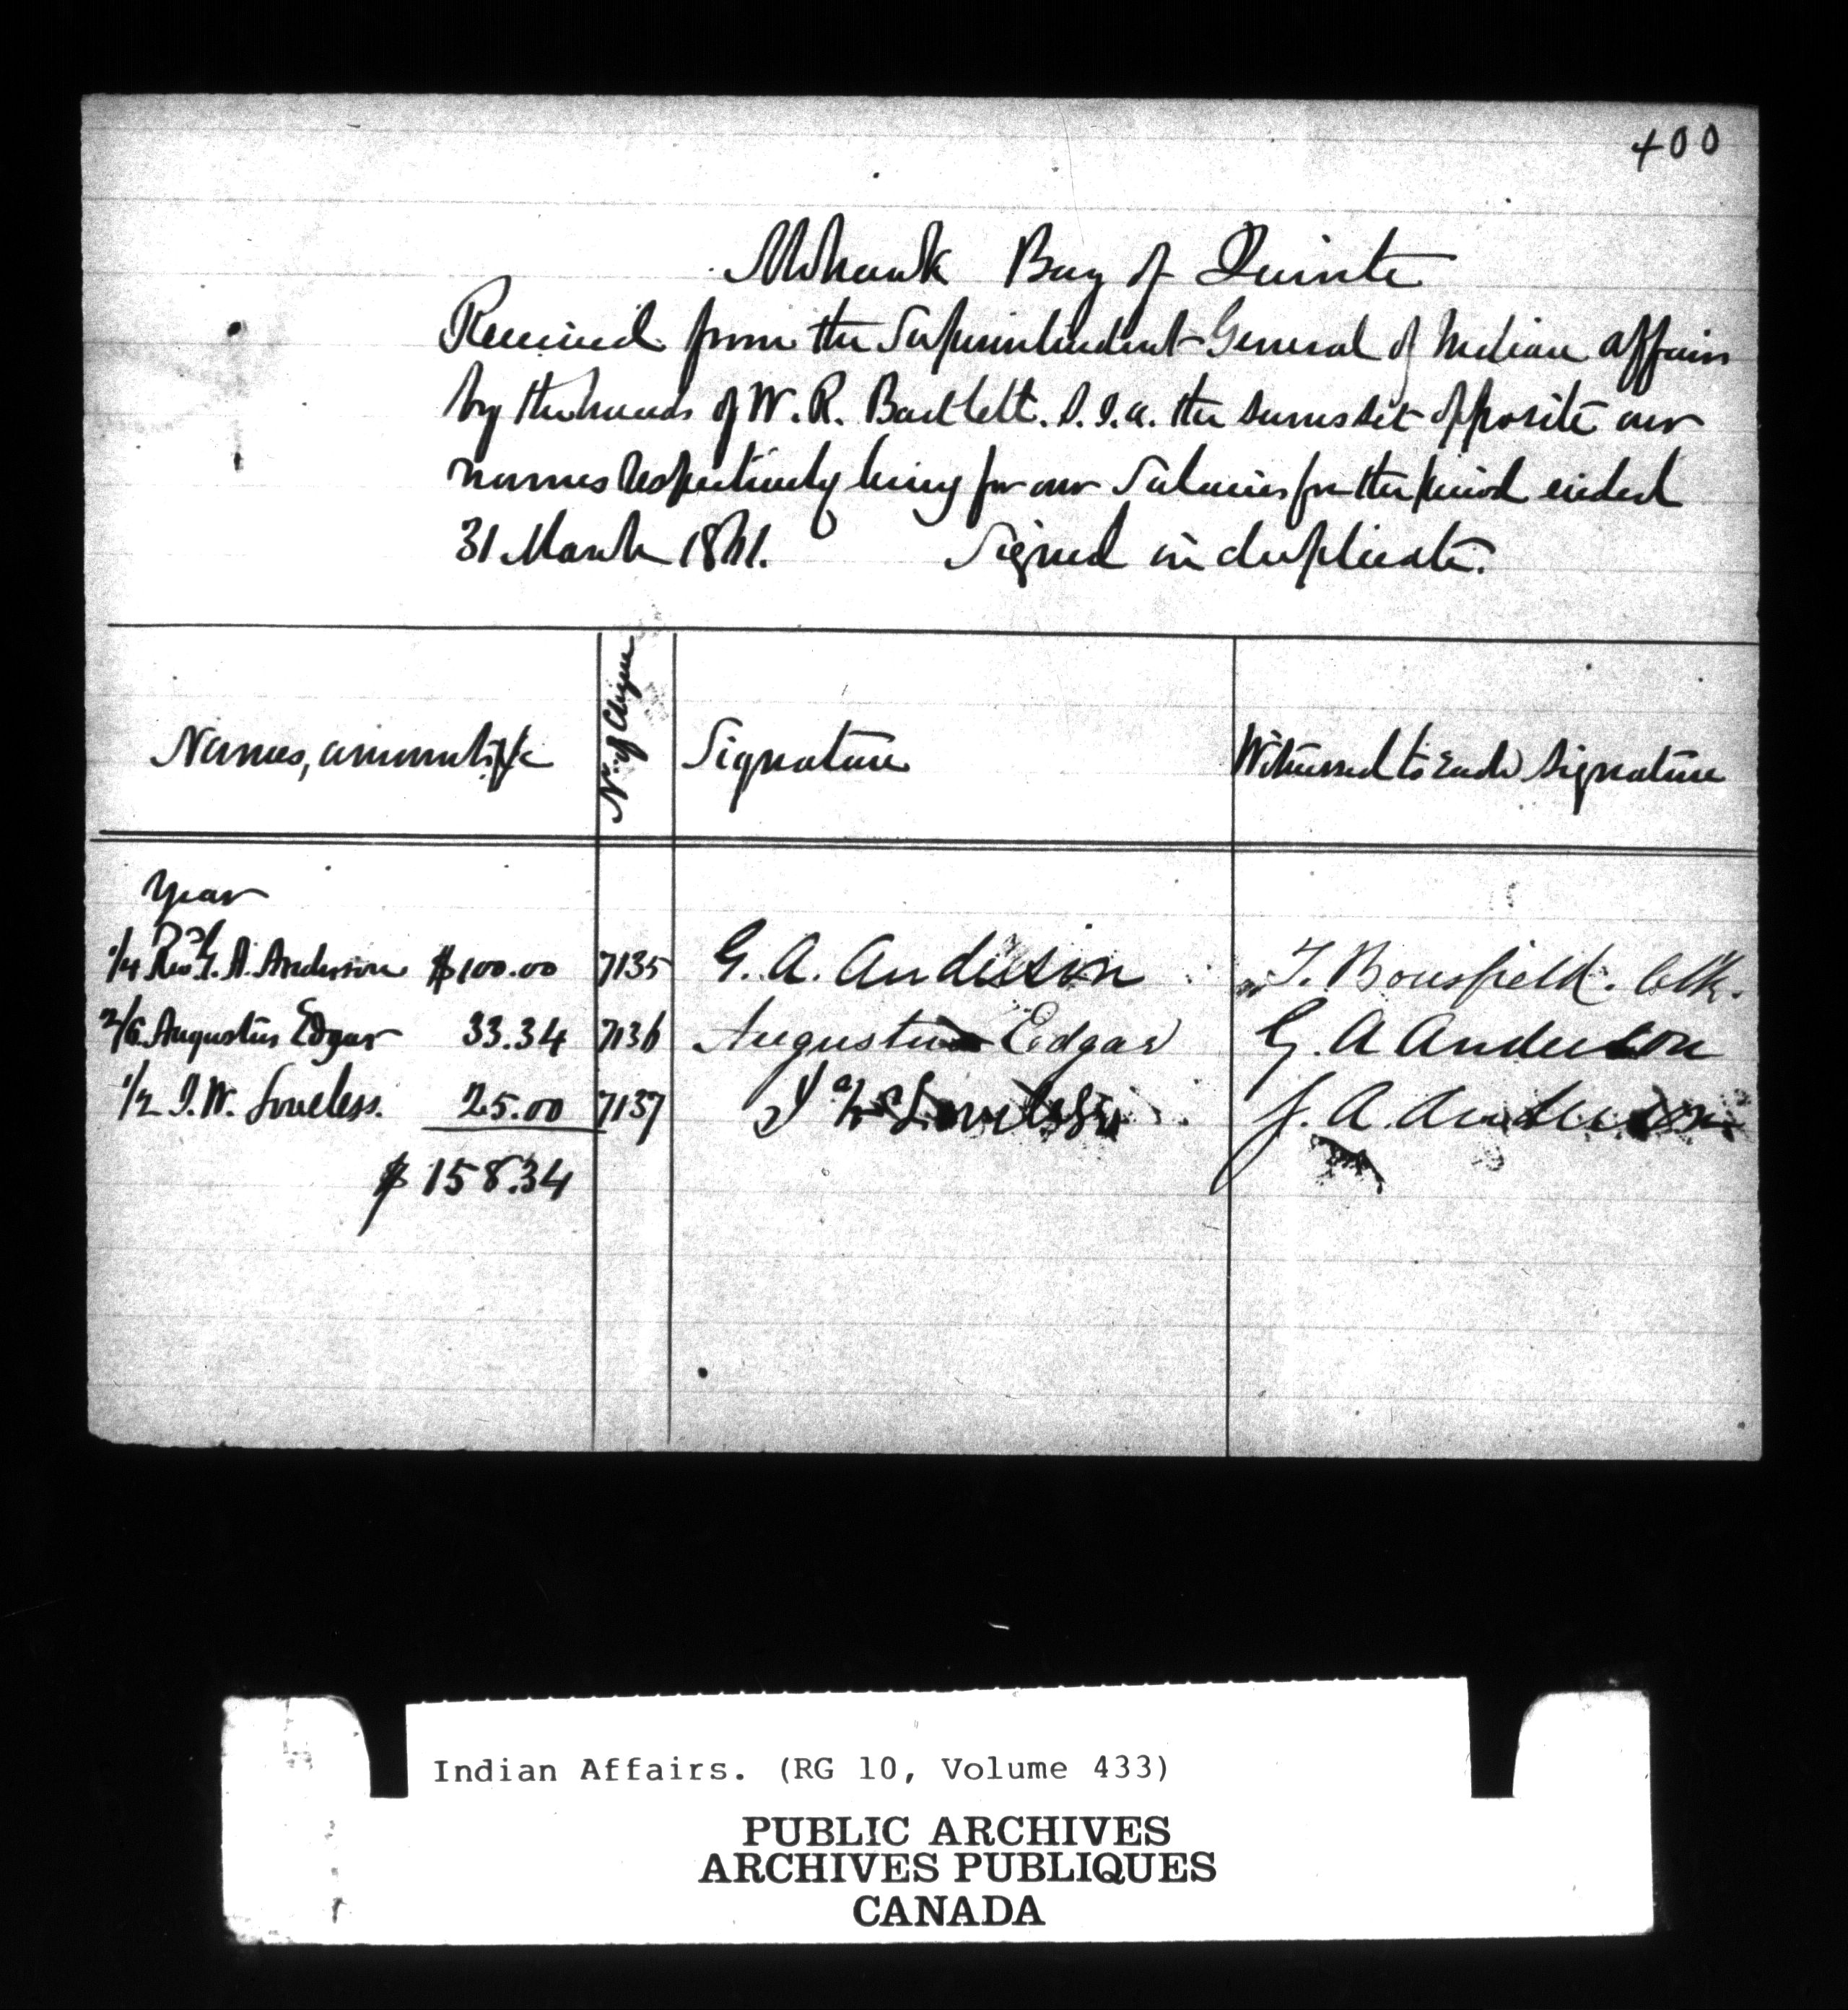 400
Mohawk Bay of Quinte
Received from the Superintendent General of Indian affairs
by the hands of W. R. Bartlett. S. I. a. the sums set opposite our
names respectively being for our Salaries for the period ended
31 March 1871. Signed in duplicate.
Names, amounts &c No. of Cheque Signature Witnessed to Each Signature
Year
1/4 Rev G. A. Anderson $100.00 7135 G. A. Anderson T. Bousfield. Clk.
2/6 Augustus Edgar 33.34 7136 Augustus Edgar G. A Anderson
1/2 J. W. Loveless. 25.00 7137 J W Loveless G. A. Anderson
$ 158.34
Indian Affairs. (RG 10, Volume 433)
PUBLIC ARCHIVES
ARCHIVES PUBLIQUES
CANADA